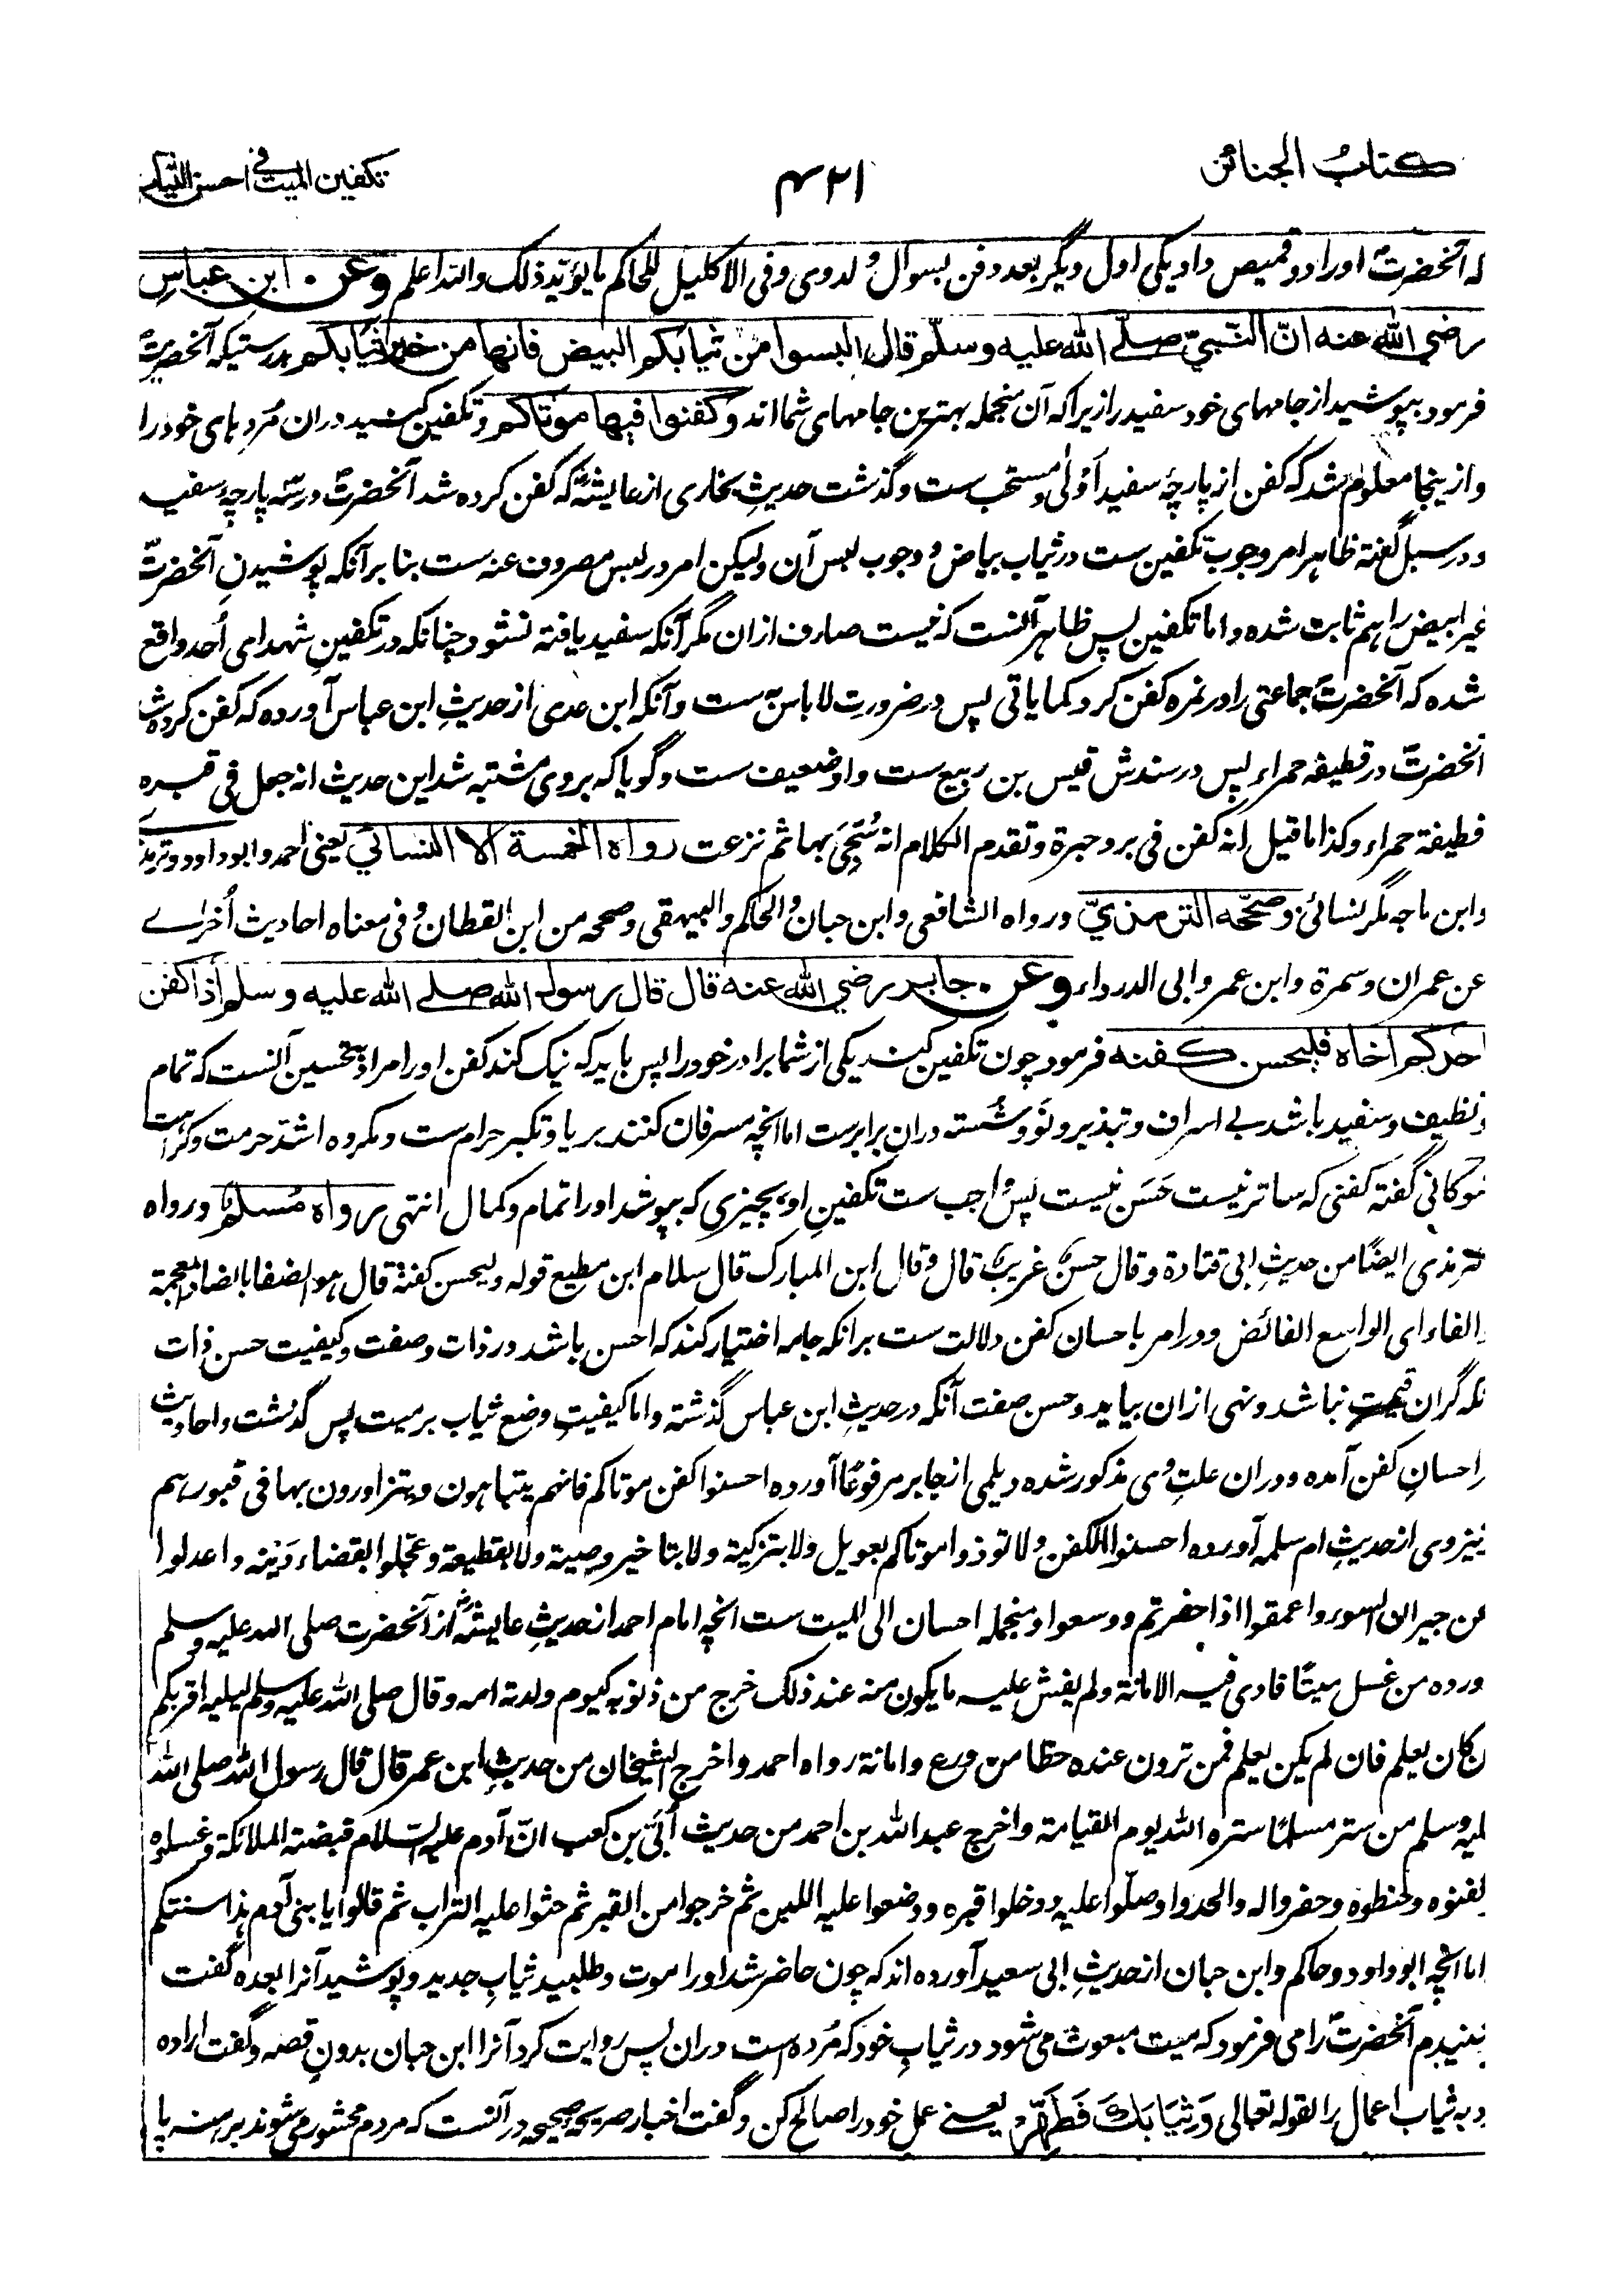 كتابُ الجنائز
۴۲۱
تكفين الميت في احسن الثياب
که آنحضرتؐ اورا دو قمیص داد یکی اول و دیگر بعد دفن بسوال ولد وی و فی الاکلیل للحاکم ما یؤید ذلک والله اعلم وعن ابن عباس
رضي الله عنه انّ النّبيّ صلّے الله عليه وسلّم قال البسوا من ثيابكم البيض فانها من خير ثيابكم بدرستیکه آنحضرتؐ
فرمود بپوشید از جامهای خود سفید را زیرا که آن منجمله بهترین جامهای شما اند وكفنوا فيها موتاكم و تکفین کنید دران مُرد های خود را
و ازینجا معلوم شد که کفن از پارچهٔ سفید اَولیٰ و مستحب ست و گذشت حدیثِ بخاری از عایشهؓ که کفن کرده شد آنحضرتؐ در سّه پارچهٔ سفید
و در سبل گفته ظاهر امر وجوب تکفین ست در ثیاب بیاض و وجوب لبس آن ولیکن امر در لبس مصروف عنه ست بنا بر آنکه پوشیدنِ آنحضرتؐ
غیر ابیض را هم ثابت شده و اما تکفین پس ظاهر آنست که نیست صارف ازان مگر آنکه سفید یافته نشود چنانکه در تکفینِ شهدای اُحد واقع
شده که آنحضرتؐ جماعتی را در نمره کفن کرد کما یاتی پس در ضرورت لا باس به ست و آنکه ابن عدی از حدیثِ ابن عباس آورده که کفن کرده شد
آنحضرتؐ در قطیفه حمراء پس در سندش قیس بن ربیع ست و او ضعیف ست و گویا که بروی مشتبه شد این حدیث انه جعل فی قبره
قطیفة حمراء و کذا ما قیل انه کفن فی برد حبرة و تقدم الکلام انه سُجّی بها ثم نزعت رواه الخمسة الا النسائي یعنی احمد و ابو داود و ترمذی
و ابن ماجه مگر نسائی وصحّحه الترمذيّ و رواه الشافعی و ابن حبان والحاکم والبیهقی و صححه من ابن القطان و فی معناه احادیث اُخرٰے
عن عمران و سمرة و ابن عمر و ابی الدرداء وعن جابر رضي الله عنه قال قال رسول الله صلے الله عليه وسلم اذا كفن
احدكم اخاه فليحسن كفنه فرمود چون تکفین کند یکی از شما برادر خود را پس باید که نیک کند کفن او را مراد بتحسین آنست که تمام
و نظیف و سفید باشد بے اسراف و تبذیر و نَو و شُسته دران برابرست اما آنچه مسرفان کنند بریا و تکبر حرام ست و مکروه اشدّ حرمت و کراهت
شوکانی گفته کفنی که ساتر نیست حَسَن نیست پس واجب ست تکفینِ او بچیزی که بپوشد او را تمام و کمال انتهی رواه مُسلم و رواه
ترمذی ایضًا من حدیثِ ابی قتادة و قال حسنٌ غریبٌ قال و قال ابن المبارک قال سلام ابن مطیع قوله ولیحسن کفنه قال هو الضفا بالضاد المعجمة
والفاء ای الواسع الفائض و در امر باحسان کفن دلالت ست برانکه جامه اختیار کند که احسن باشد در ذات و صفت و کیفیت حسن ذات
آنکه گران قیمت نباشد و نهی ازان بیاید و حسن صفت آنکه در حدیثِ ابن عباس گذشته و اما کیفیتِ وضع ثیاب بر میت پس گذشت و احادیث
در احسانِ کفن آمده و دران علتِ وی مذکور شده دیلمی از جابر مرفوعًا آورده احسنوا کفن موتاکم فانهم یتباهون و یتزاورون بها فی قبورهم
و نیز وی از حدیثِ ام سلمه آورده احسنوا الکفن و لا توذوا موتاکم بعویل ولا بتزکیة ولا بتاخیر وصیة ولا بقطیعة و عجّلوا بقضاء دَینه و اعدلوا
عن جیران السوء و اعمقوا اذا حفرتم و وسعوا و منجمله احسان الی المیت ست آنچه امام احمد از حدیثِ عایشهؓ از آنحضرت صلی الله علیه وسلم
آورده من غسل میتًا فادی فیه الامانة ولم یفش علیه ما یکون منه عند ذلک خرج من ذنوبه کیوم ولدته امه و قال صلی الله علیه وسلم لیلیه اقربکم
ان کان یعلم فان لم یکن یعلم فمن ترون عنده حظا من ورع و امانة رواه احمد و اخرج الشیخان من حدیثِ ابن عمر قال قال رسول الله صلی الله
علیه وسلم من ستر مسلمًا ستره الله یوم القیامة و اخرج عبد الله بن احمد من حدیث اُبَیّ بن کعب انّ آدم علیه السّلام قبضته الملائکة و غسلوه
و کفنوه و حنطوه و حفروا له والحدوا و صلّوا علیه و دخلوا قبره و وضعوا علیه اللبن ثم خرجوا من القبر ثم حثوا علیه التراب ثم قالوا یا بنی آدم هذا سنتکم
اما آنچه ابو داود و حاکم و ابن حبان از حدیثِ ابی سعید آورده اند که چون حاضر شد او را موت و طلبید ثیابِ جدید و پوشید آنرا بعده گفت
شنیدم آنحضرتؐ را می فرمود که میت مبعوث می شود در ثیابِ خود که مُرده است دران پس روایت کرد آنرا ابن حبان بدونِ قصه و گفت اراده
کرد به ثیاب اعمال را لقوله تعالی وَثِيَابَكَ فَطَهِّرْ یعنے عمل خود را صالح کن و گفت اخبار صریحه صحیحه در آنست که مردم محشور می شوند برهنه پا